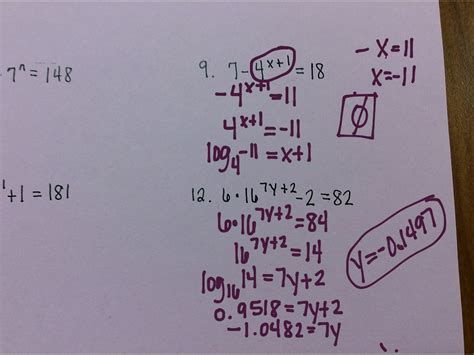 7ⁿ = 148
9. 7 - 4^(x+1) = 18
-4^(x+1) = 11
4^(x+1) = -11
log₄ -11 = x+1
- x = 11
x = -11
∅
+1 = 181
12. 6 • 16^(7y+2) - 2 = 82
6•16^(7y+2) = 84
16^(7y+2) = 14
log₁₆ 14 = 7y+2
0.9518 = 7y+2
-1.0482 = 7y
y = -0.1497